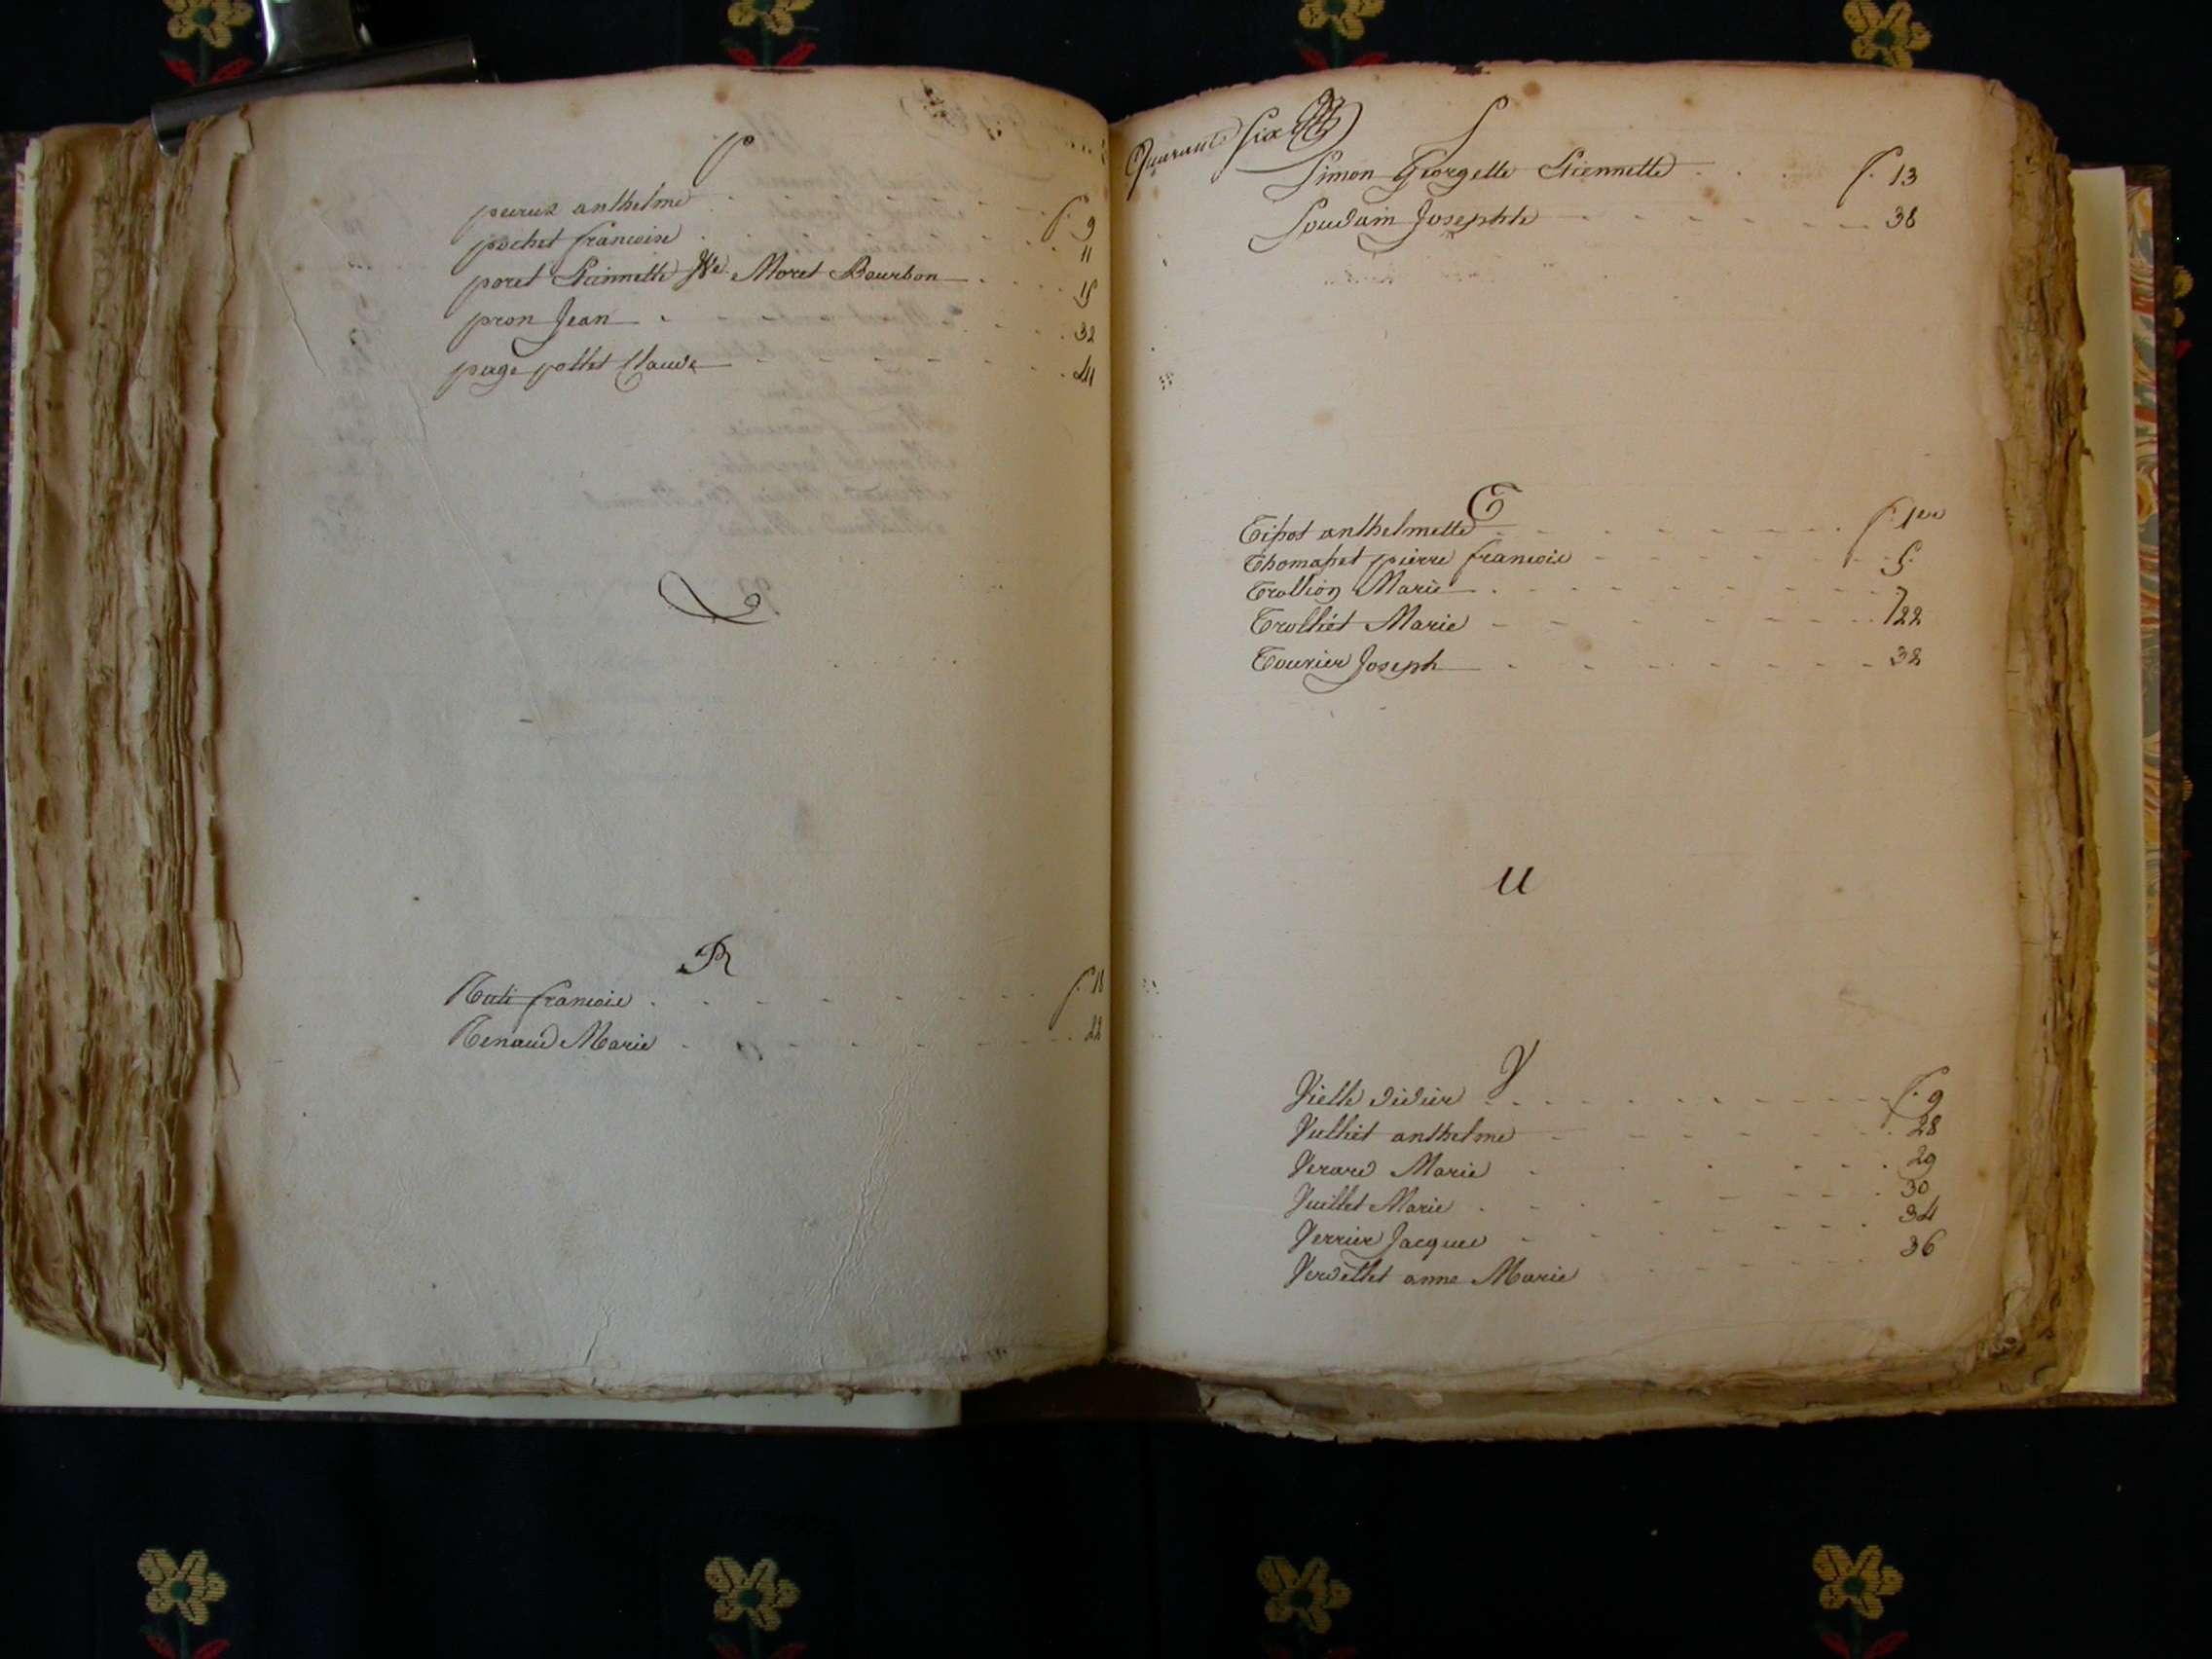 P
perrux anthelme f. 9
pochet francoise 11
poret Etiennette Ve. Moret Bourbon 15
pron Jean 32
page pottet Claude 41
Q
R
Ruti francois f. 18
Renaud Marie 22
Quarante six
S
Simon Georgette Etiennette f. 13
Soudain Josephte 38
T
Tissot anthelmette f. 1er
Thomasset pierre francois 5
Trollion Marie 7
Trolliet Marie 22
Tournier Joseph 32
U
V
Vielle didier f. 9
Vulliet anthelme 28
Verard Marie 29
Vuillet Marie 30
Verrier Jacques 34
Verdellet anne Marie 36